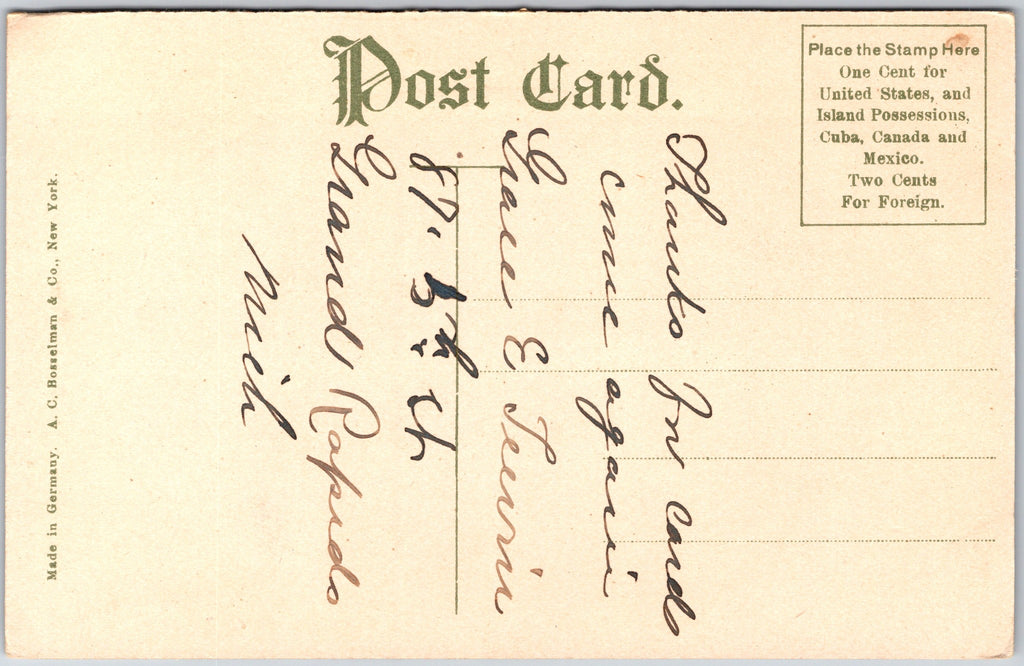 Post Card.
Place the Stamp Here
One Cent for
United States, and
Island Possessions,
Cuba, Canada and
Mexico.
Two Cents
For Foreign.
Made in Germany. A. C. Bosselman & Co., New York.
Thanks for cards
come again
Grace E
87. 5th
Grand Rapids
Mich